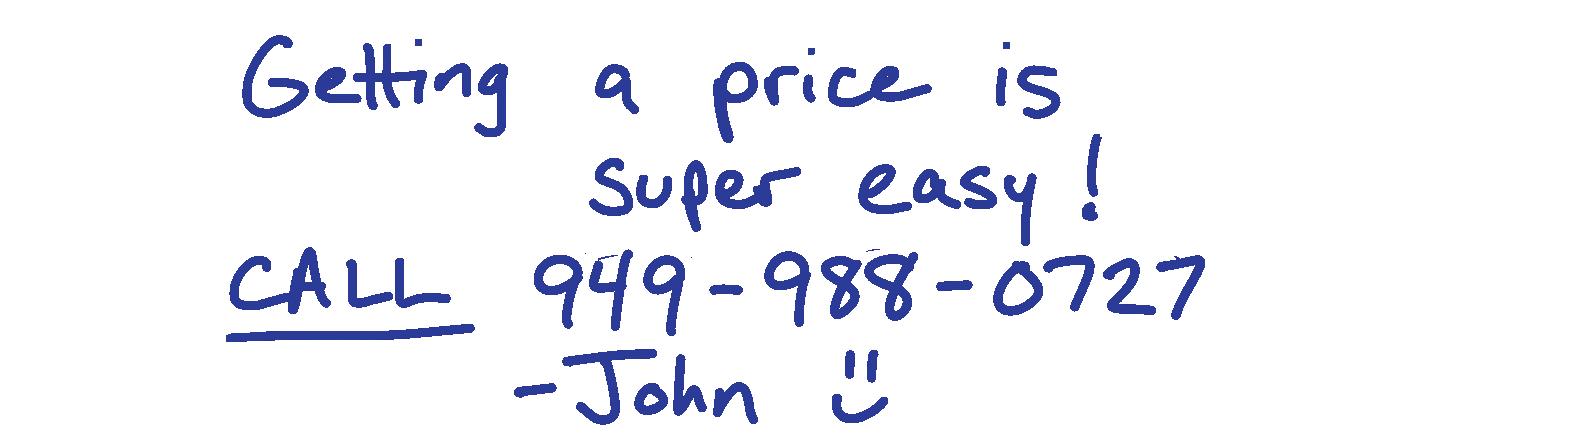 Getting a price is
super easy!
CALL 949-988-0727
-John